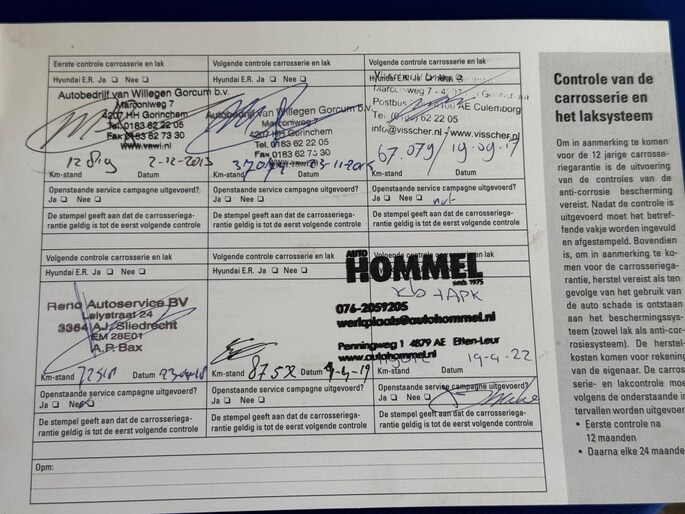 Eerste controle carrosserie en lak
Hyundai E.R. Ja ❑ Nee ❑
Autobedrijf van Willegen Gorcum b.v.
Marconiweg 7
4207 HH Gorinchem
Tel. 0183 62 22 05
Fax 0183 62 73 30
2-12-2013
Km-stand Datum
Openstaande service campagne uitgevoerd?
Ja ❑ Nee ❑
De stempel geeft aan dat de carrosseriega-
rantie geldig is tot de eerst volgende controle
Volgende controle carrosserie en lak
Hyundai E.R. Ja ❑ Nee ❑
Autobedrijf van Willegen Gorcum b.v.
Marconiweg 7
4207 HH Gorinchem
Tel. 0183 62 22 05
Fax 0183 62 73 30
Km-stand Datum
Openstaande service campagne uitgevoerd?
Ja ❑ Nee ❑
De stempel geeft aan dat de carrosseriega-
rantie geldig is tot de eerst volgende controle
Volgende controle carrosserie en lak
Hyundai E.R. Ja Nee
Postbus AE Culemborg
62 22 05
info@visscher.nl / www.visscher.nl
67.079 / 19-09-17
Km-stand Datum
Openstaande service campagne uitgevoerd?
Ja ❑ Nee ❑ nvt
De stempel geeft aan dat de carrosseriega-
rantie geldig is tot de eerst volgende controle
Volgende controle carrosserie en lak
Hyundai E.R. Ja ❑ Nee ❑
Reno Autoservice BV
Lelystraat 24
3364 AJ Sliedrecht
EM 28E01
A.P. Bax
Km-stand Datum
Openstaande service campagne uitgevoerd?
Ja ❑ Nee ❑
De stempel geeft aan dat de carrosseriega-
rantie geldig is tot de eerst volgende controle
Volgende controle carrosserie en lak
Hyundai E.R. Ja ❑ Nee ❑
Km-stand Datum 9-4-19
Openstaande service campagne uitgevoerd?
Ja ❑ Nee ❑
De stempel geeft aan dat de carrosseriega-
rantie geldig is tot de eerst volgende controle
Volgende controle carrosserie en lak
AUTO
HOMMEL
sinds 1975
+APK
076-2059205
werkplaats@autohommel.nl
Penningweg 1 4879 AE Etten-Leur
www.autohommel.nl
19-4-22
Openstaande service campagne uitgevoerd?
Ja ❑ Nee ❑
De stempel geeft aan dat de carrosseriega-
rantie geldig is tot de eerst volgende controle
Opm:
Controle van de
carrosserie en
het laksysteem
Om in aanmerking te komen
voor de 12 jarige carrosse-
riegarantie is de uitvoering
van de controles van de
anti-corrosie bescherming
vereist. Nadat de controle is
uitgevoerd moet het betref-
fende vakje worden ingevuld
en afgestempeld. Bovendien
is, om in aanmerking te ko-
men voor de carrosseriega-
rantie, herstel vereist als ten
gevolge van het gebruik van
de auto schade is ontstaan
aan het beschermingssys-
teem (zowel lak als anti-cor-
rosiesysteem). De herstel-
kosten komen voor rekening
van de eigenaar. De carros
serie- en lakcontrole moet
volgens de onderstaande in
tervallen worden uitgevoer
• Eerste controle na
12 maanden
• Daarna elke 24 maande